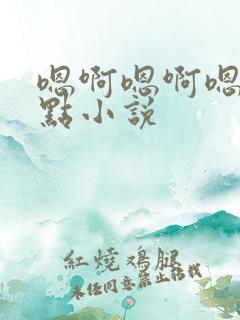 嗯啊嗯啊嗯
點小說
紅燒鸡腿
未经同意禁止转载